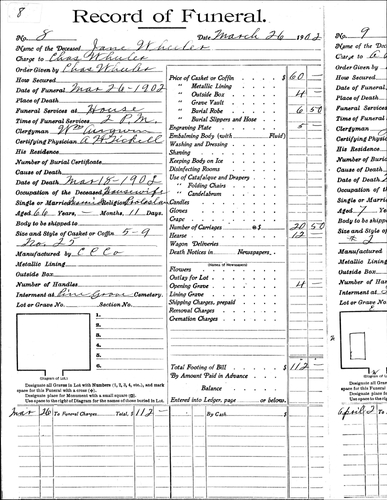 8
Record of Funeral.
No. 8 Date March 26 1902
Name of the Deceased Jane Wheeler
Charge to Chas Wheeler
Order Given by Chas Wheeler
How Secured
Date of Funeral Mar 26 - 1902
Place of Death
Funeral Services at House
Time of Funeral Services 2 P.M.
Clergyman Wm
Certifying Physician
His Residence
Number of Burial Certificate
Cause of Death
Date of Death Mar 18 - 1902
Occupation of the Deceased Housewife
Single or Married Religion
Aged 66 Years, - Months, 11 Days.
Body to be shipped to
Size and Style of Casket or Coffin 5-9
No. 25
Manufactured by C C Co
Metallic Lining
Outside Box
Number of Handles
Interment at Pine Grove Cemetery.
Lot or Grave No. Section No.
1.
2.
3.
4.
5.
6.
(Diagram of Lot.)
Designate all Graves in Lot with Numbers (1, 2, 3, 4, etc.), and mark
space for this Funeral with a cross (x).
Designate place for Monument with a small square (□).
Use space to the right of Diagram for the names of those buried in Lot.
Price of Casket or Coffin $ 60 -
" Metallic Lining
" Outside Box 4 -
" Grave Vault
" Burial Robe 6 50
" Burial Slippers and Hose
Engraving Plate 5
Embalming Body (with Fluid)
Washing and Dressing
Shaving
Keeping Body on Ice
Disinfecting Rooms
Use of Catafalque and Drapery
" Folding Chairs
" Candelabrum
Candles
Gloves
Crape
Number of Carriages @ $ 20 50
Hearse 12 -
Wagon Deliveries
Death Notices in Newspapers.
(Names of Newspapers)
Flowers
Outlay for Lot
Opening Grave 4 -
Lining Grave
Shipping Charges, prepaid
Removal Charges
Cremation Charges
Total Footing of Bill $ 112 -
By Amount Paid in Advance
Balance
Entered into Ledger, page or below.
Mar 26 To Funeral Charges. Total. $ 112 - By Cash $
No. 9
Name of the
Charge to
Order Given
How Secured
Date of Fun
Place of Dea
Funeral Ser
Time of Fun
Clergyman
Certifying P
His Residence
Number of B
Cause of Dea
Date of Death
Occupation
Single or Ma
Aged 7 Years
Body to be sh
Size and Style
# 2
Manufactured
Metallic Linin
Outside Box
Number of Ha
Interment at
Lot or Grave
April 2 To